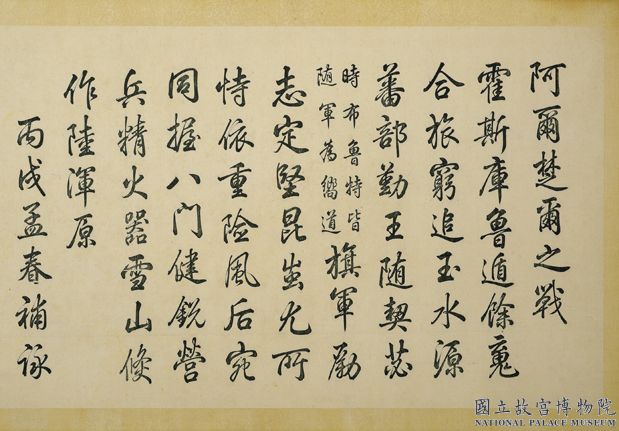 阿爾楚爾之戰
霍斯庫魯遁餘䰟
合旅窮追玉水源
蕃部勤王随契苾
時布魯特皆
随軍為嚮道
旗軍勵
志定堅昆蚩尤所
恃依重險風后宛
同握八門健銳營
兵精火器雪山倏
作陸渾原
丙戌孟春補詠
國立故宮博物院
NATIONAL PALACE MUSEUM